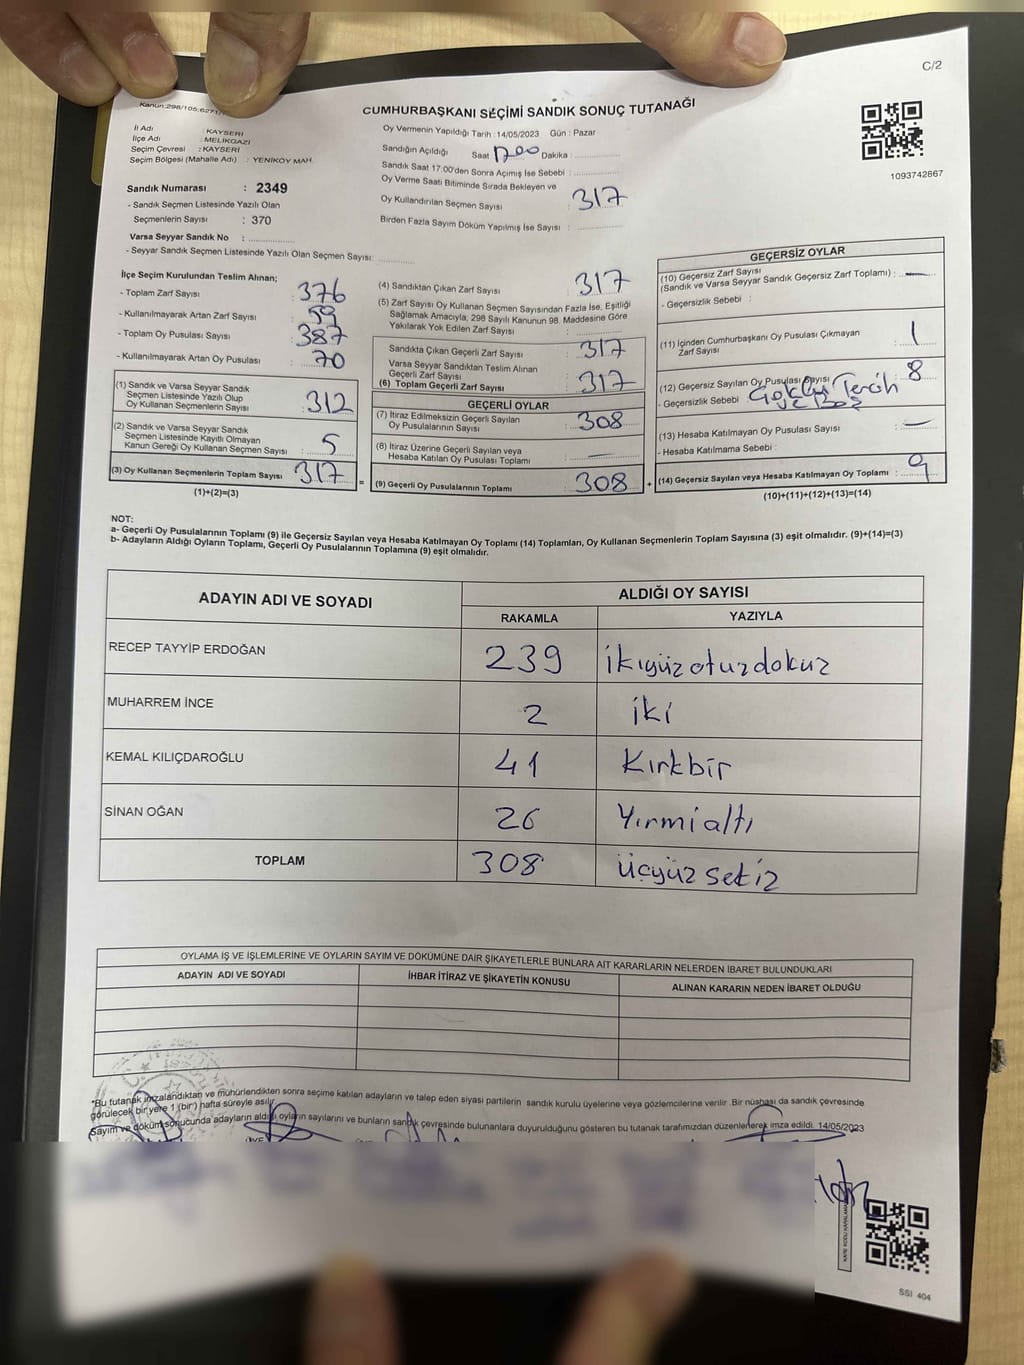 C/2
Kanun:298/105;6271/
CUMHURBAŞKANI SEÇİMİ SANDIK SONUÇ TUTANAĞI
1093742867
İl Adı : KAYSERİ
İlçe Adı : MELİKGAZİ
Seçim Çevresi : KAYSERİ
Seçim Bölgesi (Mahalle Adı) : YENİKÖY MAH.
Sandık Numarası : 2349
- Sandık Seçmen Listesinde Yazılı Olan
Seçmenlerin Sayısı : 370
Varsa Seyyar Sandık No :
- Seyyar Sandık Seçmen Listesinde Yazılı Olan Seçmen Sayısı:
Oy Vermenin Yapıldığı Tarih : 14/05/2023 Gün : Pazar
Sandığın Açıldığı Saat 1700 Dakika :
Sandık Saat 17:00'den Sonra Açımış İse Sebebi :
Oy Verme Saati Bitiminde Sırada Bekleyen ve
Oy Kullandırılan Seçmen Sayısı : 317
Birden Fazla Sayım Döküm Yapılmış İse Sayısı :
İlçe Seçim Kurulundan Teslim Alınan;
- Toplam Zarf Sayısı : 376
- Kullanılmayarak Artan Zarf Sayısı : 59
- Toplam Oy Pusulası Sayısı : 387
- Kullanılmayarak Artan Oy Pusulası : 70
(1) Sandık ve Varsa Seyyar Sandık
Seçmen Listesinde Yazılı Olup
Oy Kullanan Seçmenlerin Sayısı : 312
(2) Sandık ve Varsa Seyyar Sandık
Seçmen Listesinde Kayıtlı Olmayan
Kanun Gereği Oy Kullanan Seçmen Sayısı : 5
(3) Oy Kullanan Seçmenlerin Toplam Sayısı : 317
(1)+(2)=(3)
=
(4) Sandıktan Çıkan Zarf Sayısı : 317
(5) Zarf Sayısı Oy Kullanan Seçmen Sayısından Fazla İse, Eşitliği
Sağlamak Amacıyla; 298 Sayılı Kanunun 98. Maddesine Göre
Yakılarak Yok Edilen Zarf Sayısı :
Sandıkta Çıkan Geçerli Zarf Sayısı : 317
Varsa Seyyar Sandıktan Teslim Alınan
Geçerli Zarf Sayısı :
(6) Toplam Geçerli Zarf Sayısı : 317
GEÇERLİ OYLAR
(7) İtiraz Edilmeksizin Geçerli Sayılan
Oy Pusulalarının Sayısı : 308
(8) İtiraz Üzerine Geçerli Sayılan veya
Hesaba Katılan Oy Pusulası Toplamı : —
(9) Geçerli Oy Pusulalarının Toplamı : 308
+
GEÇERSİZ OYLAR
(10) Geçersiz Zarf Sayısı
(Sandık ve Varsa Seyyar Sandık Geçersiz Zarf Toplamı) : —
- Geçersizlik Sebebi :
(11) İçinden Cumhurbaşkanı Oy Pusulası Çıkmayan
Zarf Sayısı : 1
(12) Geçersiz Sayılan Oy Pusulası Sayısı : 8
- Geçersizlik Sebebi Tercih
ve Boş
(13) Hesaba Katılmayan Oy Pusulası Sayısı : —
- Hesaba Katılmama Sebebi :
(14) Geçersiz Sayılan veya Hesaba Katılmayan Oy Toplamı : 9
(10)+(11)+(12)+(13)=(14)
NOT:
a- Geçerli Oy Pusulalarının Toplamı (9) ile Geçersiz Sayılan veya Hesaba Katılmayan Oy Toplamı (14) Toplamları, Oy Kullanan Seçmenlerin Toplam Sayısına (3) eşit olmalıdır. (9)+(14)=(3)
b- Adayların Aldığı Oyların Toplamı, Geçerli Oy Pusulalarının Toplamına (9) eşit olmalıdır.
ADAYIN ADI VE SOYADI ALDIĞI OY SAYISI
RAKAMLA YAZIYLA
RECEP TAYYİP ERDOĞAN 239 ikiyüzotuzdokuz
MUHARREM İNCE 2 iki
KEMAL KILIÇDAROĞLU 41 Kırkbir
SİNAN OĞAN 26 Yirmialtı
TOPLAM 308 üçyüzsekiz
OYLAMA İŞ VE İŞLEMLERİNE VE OYLARIN SAYIM VE DÖKÜMÜNE DAİR ŞİKAYETLERLE BUNLARA AİT KARARLARIN NELERDEN İBARET BULUNDUKLARI
ADAYIN ADI VE SOYADI İHBAR İTİRAZ VE ŞİKAYETİN KONUSU ALINAN KARARIN NEDEN İBARET OLDUĞU
*Bu tutanak imzalandıktan ve mühürlendikten sonra seçime katılan adayların ve talep eden siyasi partilerin sandık kurulu üyelerine veya gözlemcilerine verilir. Bir nüshası da sandık çevresinde
görülecek bir yere 1 (bir) hafta süreyle asılır.
Sayım ve döküm sonucunda adayların aldığı oyların sayılarını ve bunların sandık çevresinde bulunanlara duyurulduğunu gösteren bu tutanak tarafımızdan düzenlenerek imza edildi. 14/05/2023
SSI 404